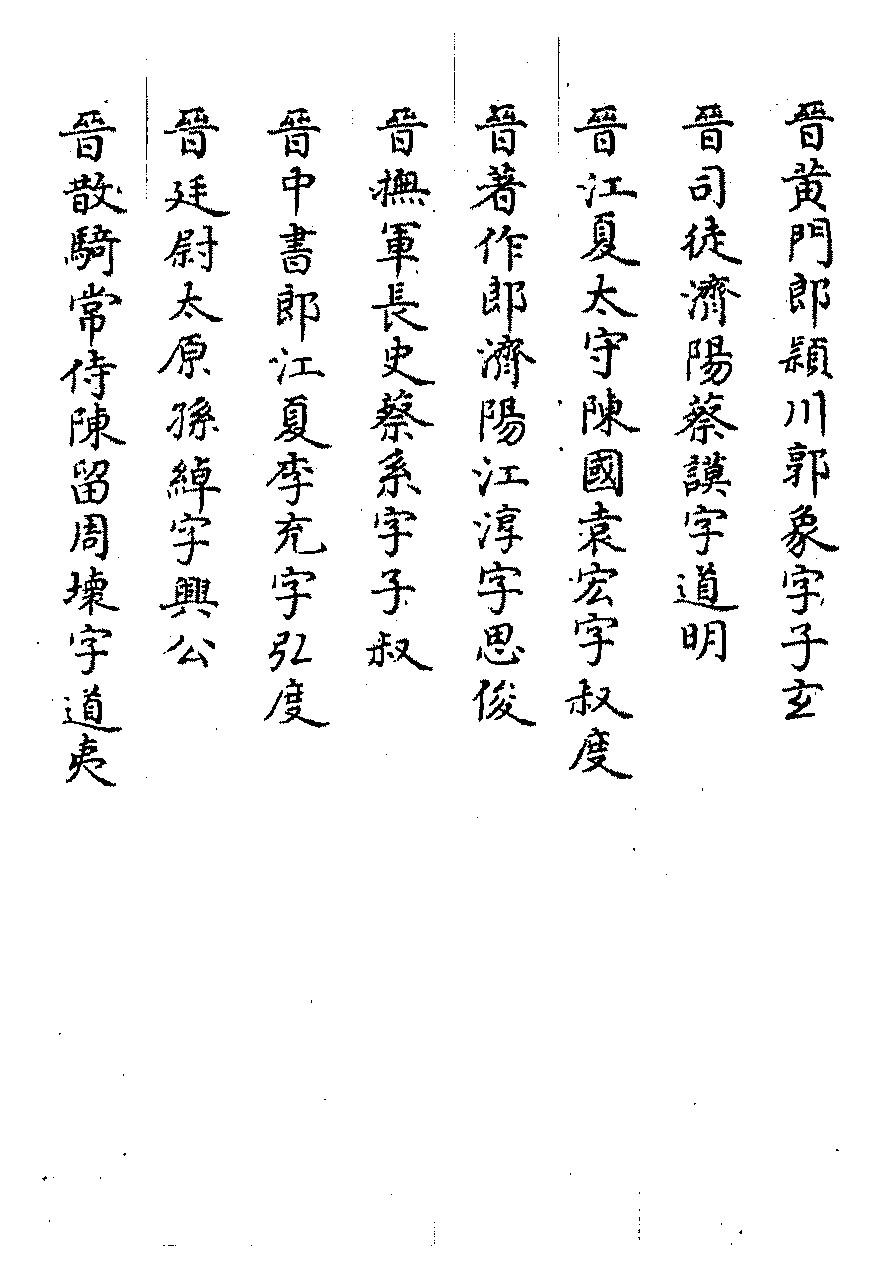 晉黄門郎潁川郭象字子玄
晉司徒濟陽蔡謨字道明
晉江夏太守陳國袁宏字叔度
晉著作郎濟陽江淳字思俊
晉撫軍長史蔡系字子叔
晉中書郎江夏李充字弘度
晉廷尉太原孫綽字興公
晉散騎常侍陳留周壞字道夷